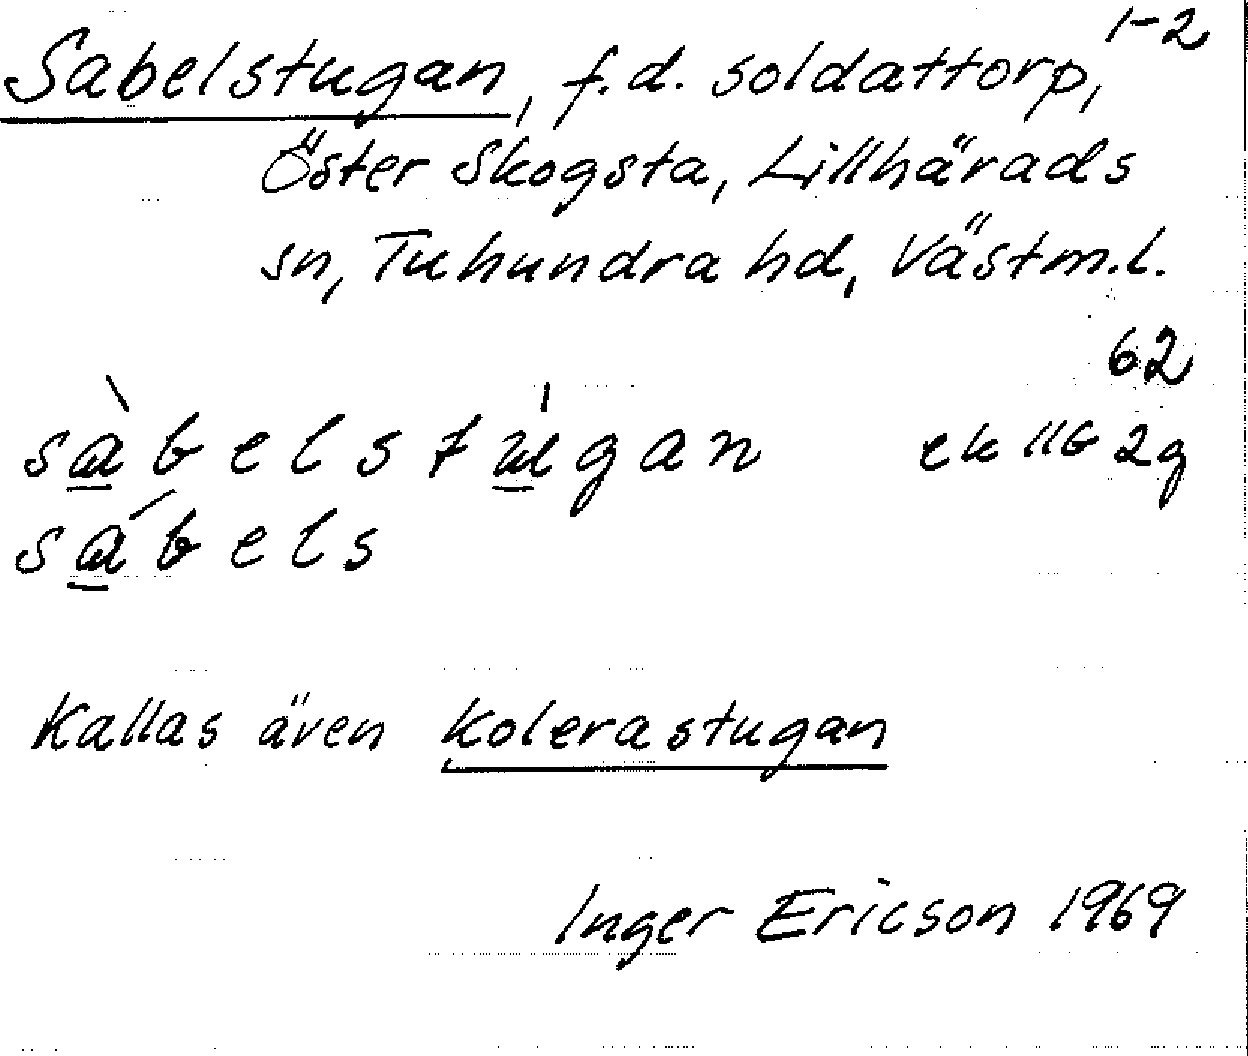 1-2
Sabelstugan, f.d. soldattorp,
Öster Skogsta, Lillhärads
sn, Tuhundra hd, Västm.l.
62
sàbelstu̍gan ek 11b 2g
sábels
Kallas även Kolerastugan
Inger Ericson 1969